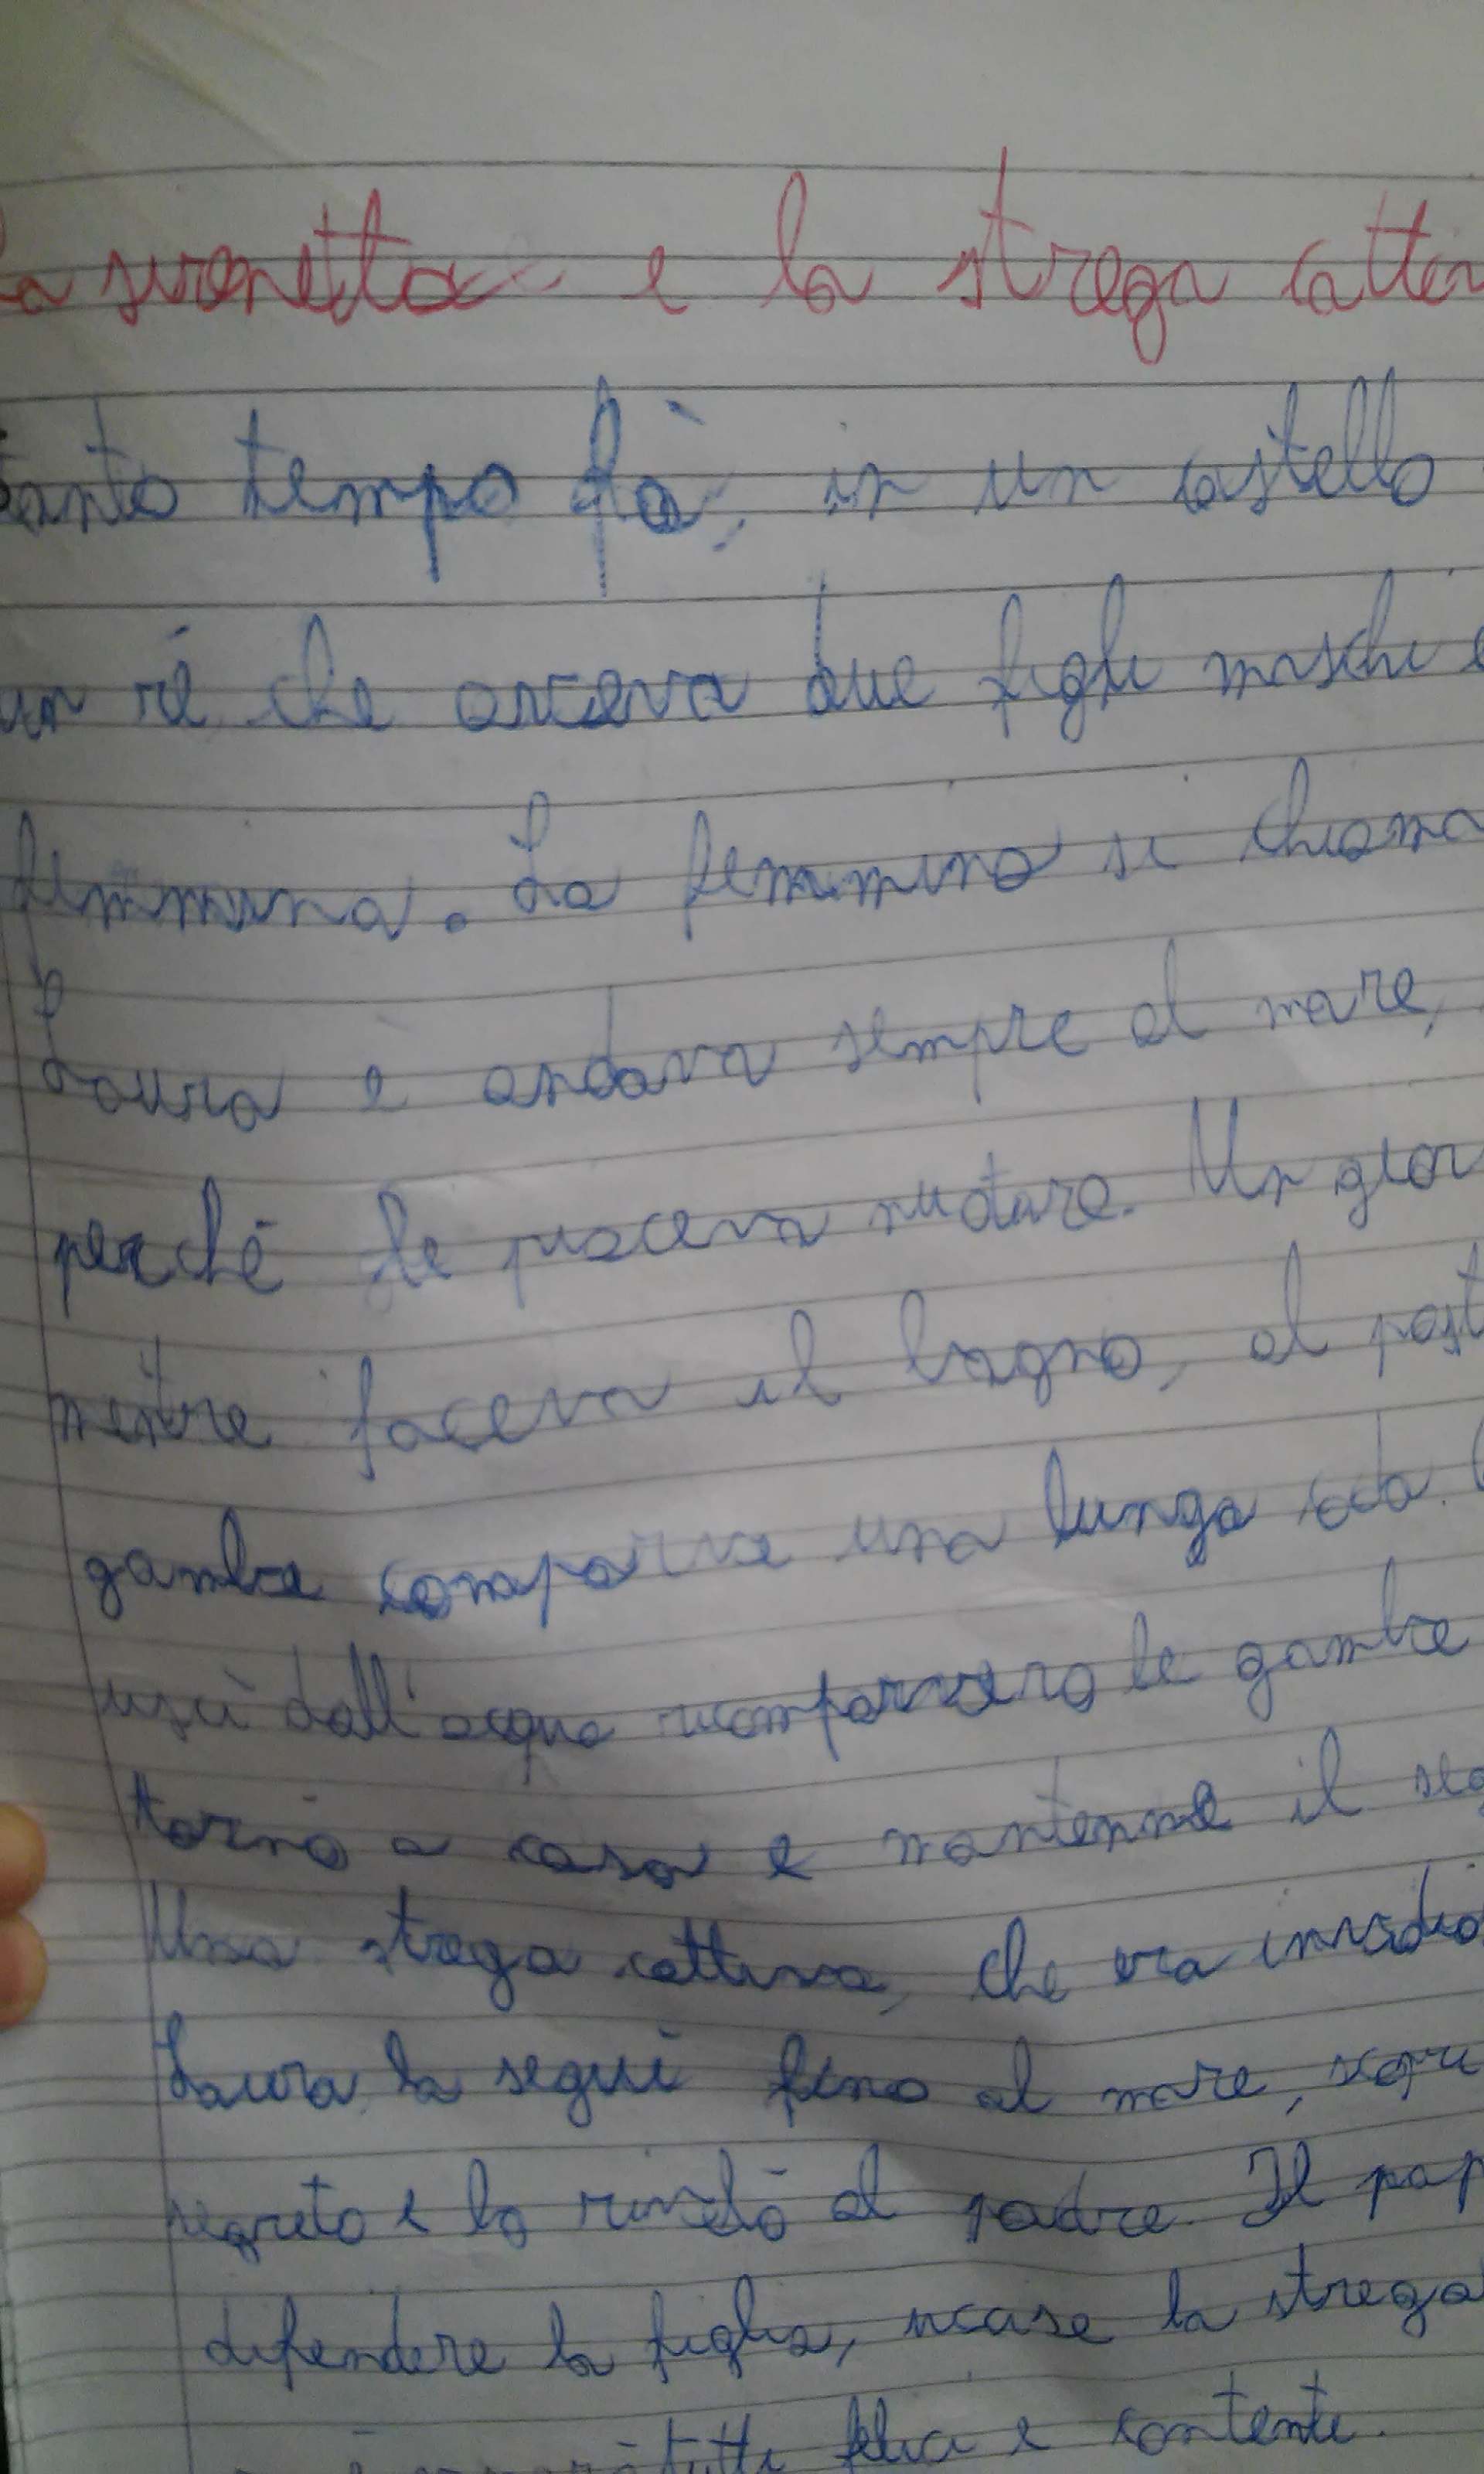 La sirenetta e la strega catti
tanto tempo fà, in un castello
un ré che aveva due figli maschi e
femmina. La femmina si chiama
Laura e andava sempre al mare,
perché le piaceva nuotare. Un gior
mentre faceva il bagno, al post
gambe comparve una lunga coda.
uscì dall'acqua ricomparvero le gambe
tornò a casa e mantenne il seg
Una strega cattiva, che era invidio
Laura la seguì fino al mare, scopri
segreto e lo rivelò al padre. Il pap
difendere la figlia, uccise la strega
tutti felici e contenti.